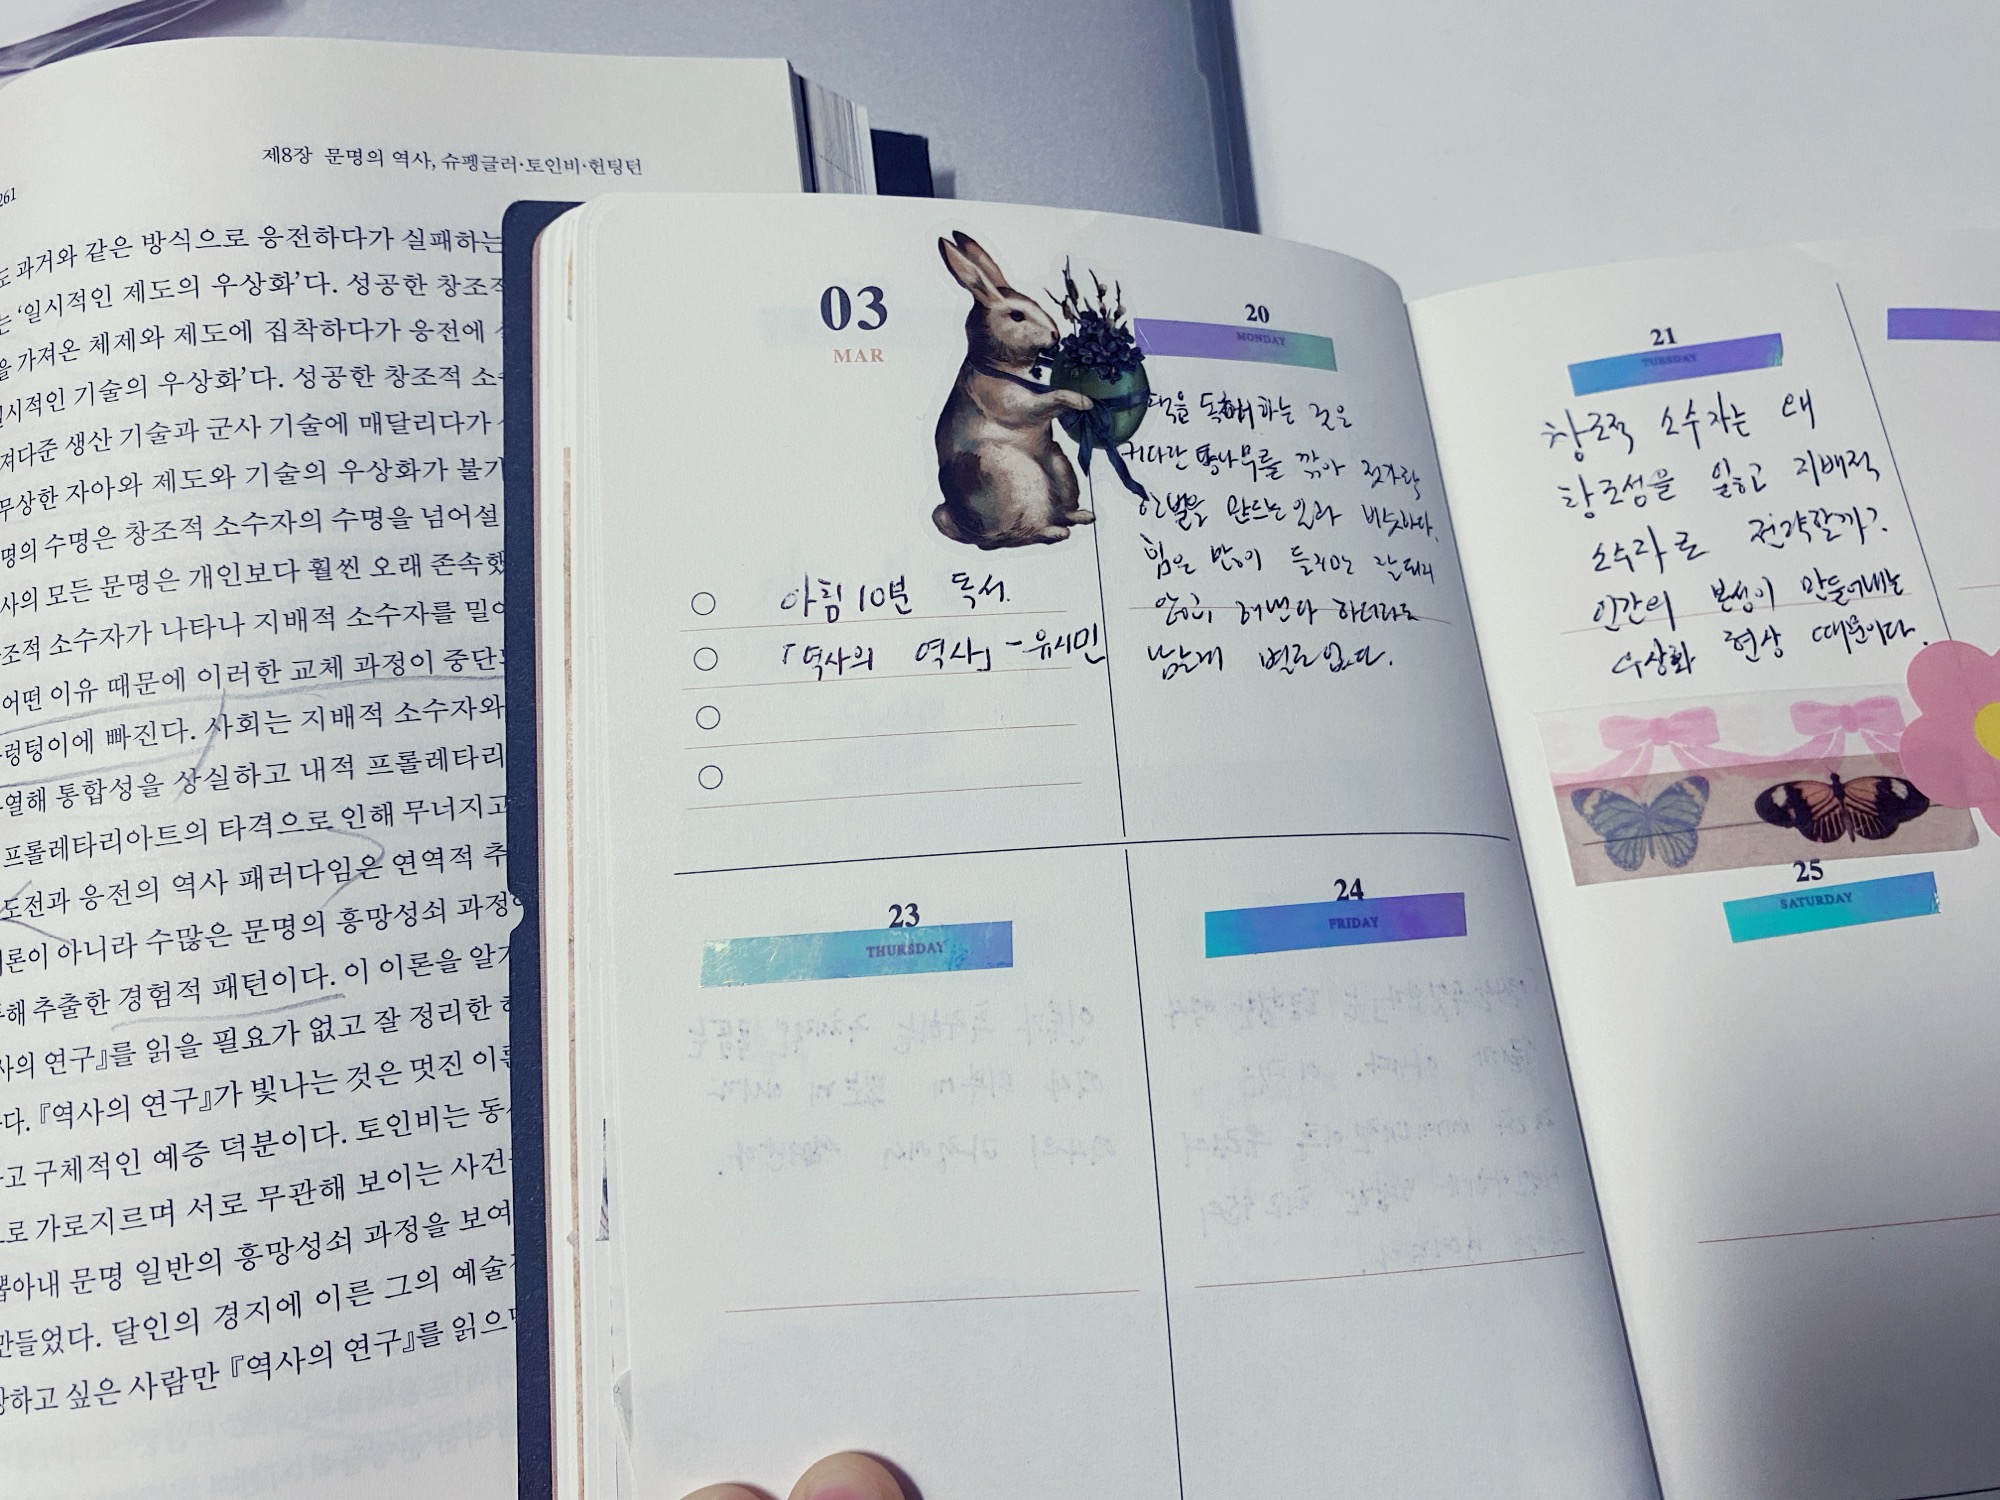 제8장 문명의 역사, 슈펭글러·토인비·헌팅턴
261
도 과거와 같은 방식으로 응전하다가 실패하는
는 '일시적인 제도의 우상화'다. 성공한 창조적
을 가져온 체제와 제도에 집착하다가 응전에
일시적인 기술의 우상화'다. 성공한 창조적 소
져다준 생산 기술과 군사 기술에 매달리다가
무상한 자아와 제도와 기술의 우상화가 불가
명의 수명은 창조적 소수자의 수명을 넘어설
사의 모든 문명은 개인보다 훨씬 오래 존속했
조적 소수자가 나타나 지배적 소수자를 밀어
어떤 이유 때문에 이러한 교체 과정이 중단
렁텅이에 빠진다. 사회는 지배적 소수자와
열해 통합성을 상실하고 내적 프롤레타리
프롤레타리아트의 타격으로 인해 무너지고
도전과 응전의 역사 패러다임은 연역적 추
이론이 아니라 수많은 문명의 흥망성쇠 과정
통해 추출한 경험적 패턴이다. 이 이론을 알기
사의 연구』를 읽을 필요가 없고 잘 정리한
다. 『역사의 연구』가 빛나는 것은 멋진 이론
고 구체적인 예증 덕분이다. 토인비는 동
로 가로지르며 서로 무관해 보이는 사건
뽑아내 문명 일반의 흥망성쇠 과정을 보여
만들었다. 달인의 경지에 이른 그의 예술
하고 싶은 사람만 『역사의 연구』를 읽으
03
MAR
아침 10분 독서.
「역사의 역사」 - 유시민
20
MONDAY
책을 독해하는 것은
커다란 통나무를 깎아 젓가락
한벌을 만드는 일과 비슷하다.
힘은 많이 들지만 잘되지
않고, 해낸다 하더라도
남는게 별로 없다.
21
TUESDAY
창조적 소수자는 왜
창조성을 잃고 지배적
소수자로 전락할까?
인간의 본성이 만들어내는
우상화 현상 때문이다.
23
THURSDAY
24
FRIDAY
25
SATURDAY